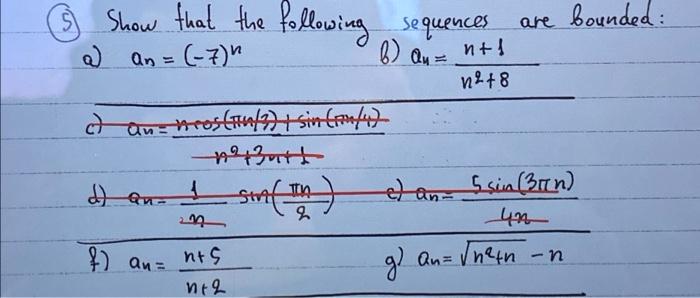 5 Show that the following sequences are bounded:
a) an = (-7)^n b) an = n+1 / n²+8
c) an = n cos(πn/3) + sin(πn/4) / n²+3n+1
d) an = 1/2n sin(πn/2) e) an = 5 sin(3πn) / 4n
f) an = n+5 / n+2 g) an = √n²+n - n